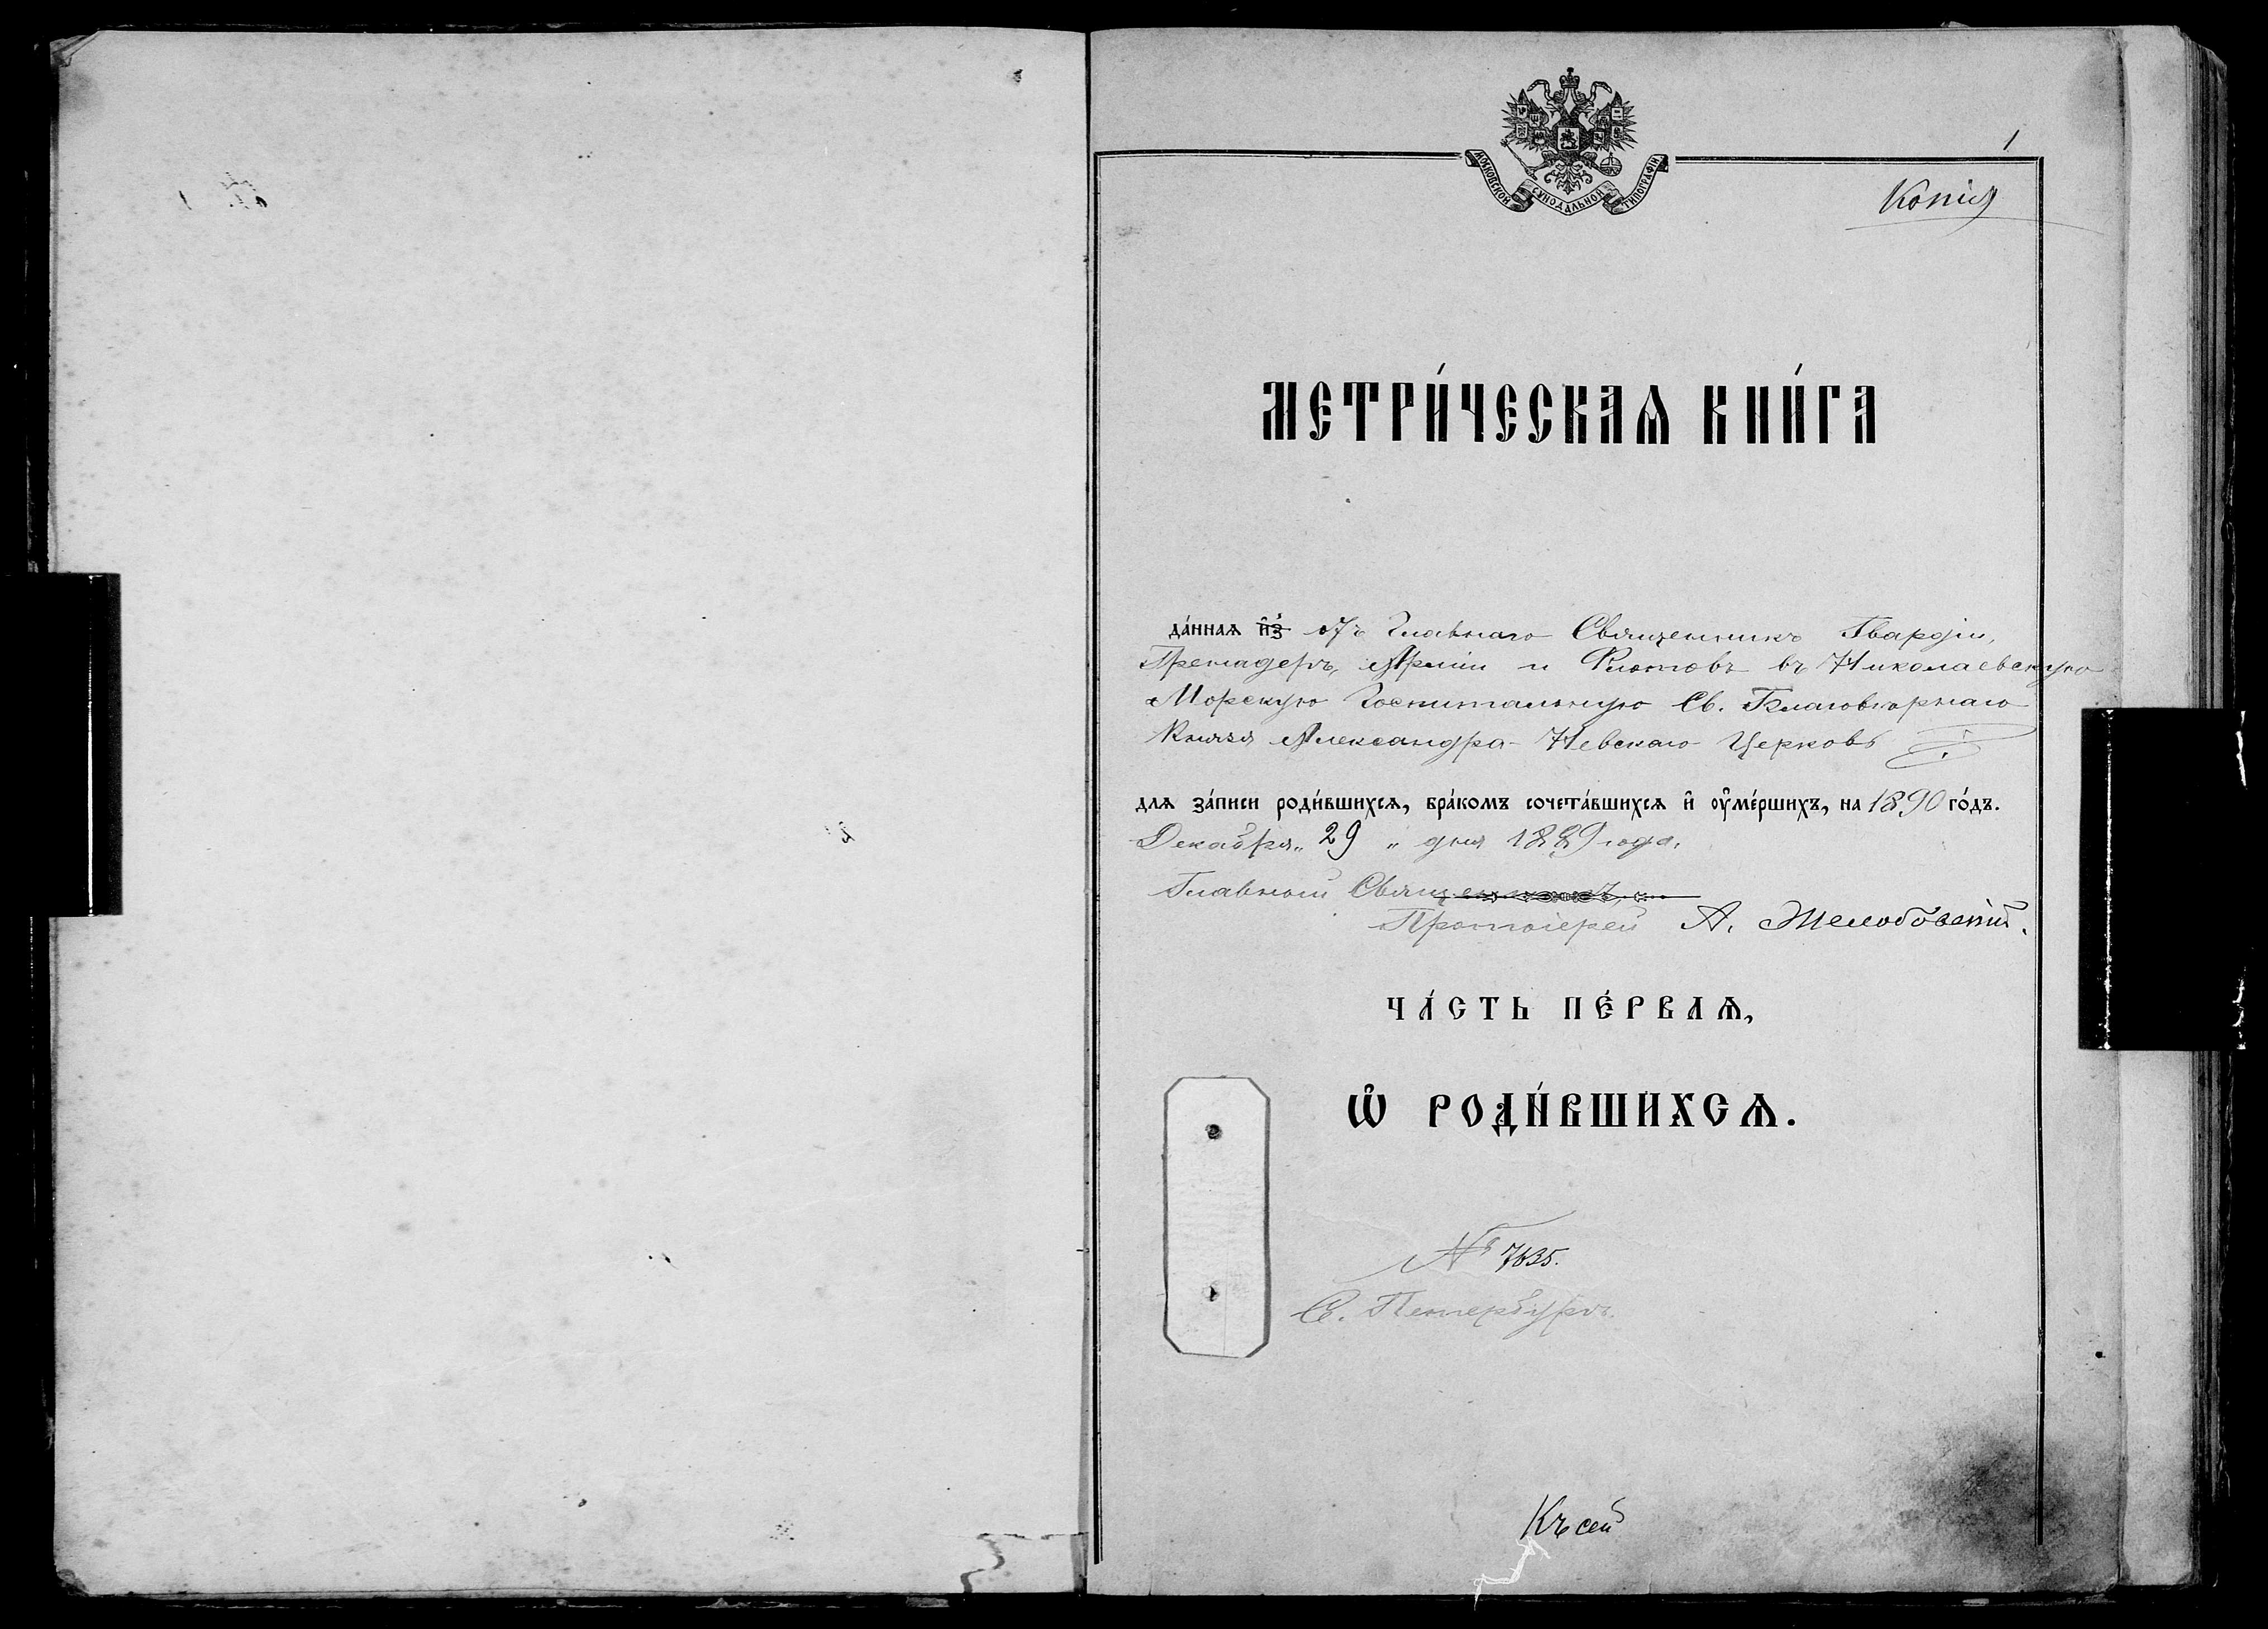 1
МОСКОВСКОЙ СѴНОДАЛЬНОЙ ТИПОГРАФІИ
Копія
МЕТРИ́ЧЕСКАѦ КНИ́ГА
да́ннаѧ и҆з̾ отъ Главнаго Священника Гвардіи,
Гренадеръ, Арміи и Флотовъ въ Николаевскую
Морскую Госпитальную Св. Благовѣрнаго
Князя Александра-Невскаго Церковь
длѧ за́писи роди́вшихсѧ, бра́комъ сочета́вшихсѧ и҆ оу҆ме́ршихъ, на 1890 го́дъ.
Декабря „ 29 „ дня 1889 года.
Главный Священникъ,
Протоіерей А. Желобовскій.
ЧА́СТЬ ПЕ́РВАѦ,
Ѡ҆ РОДИ́ВШИХСѦ.
№ 7635.
С. Петербургъ.
Къ сей